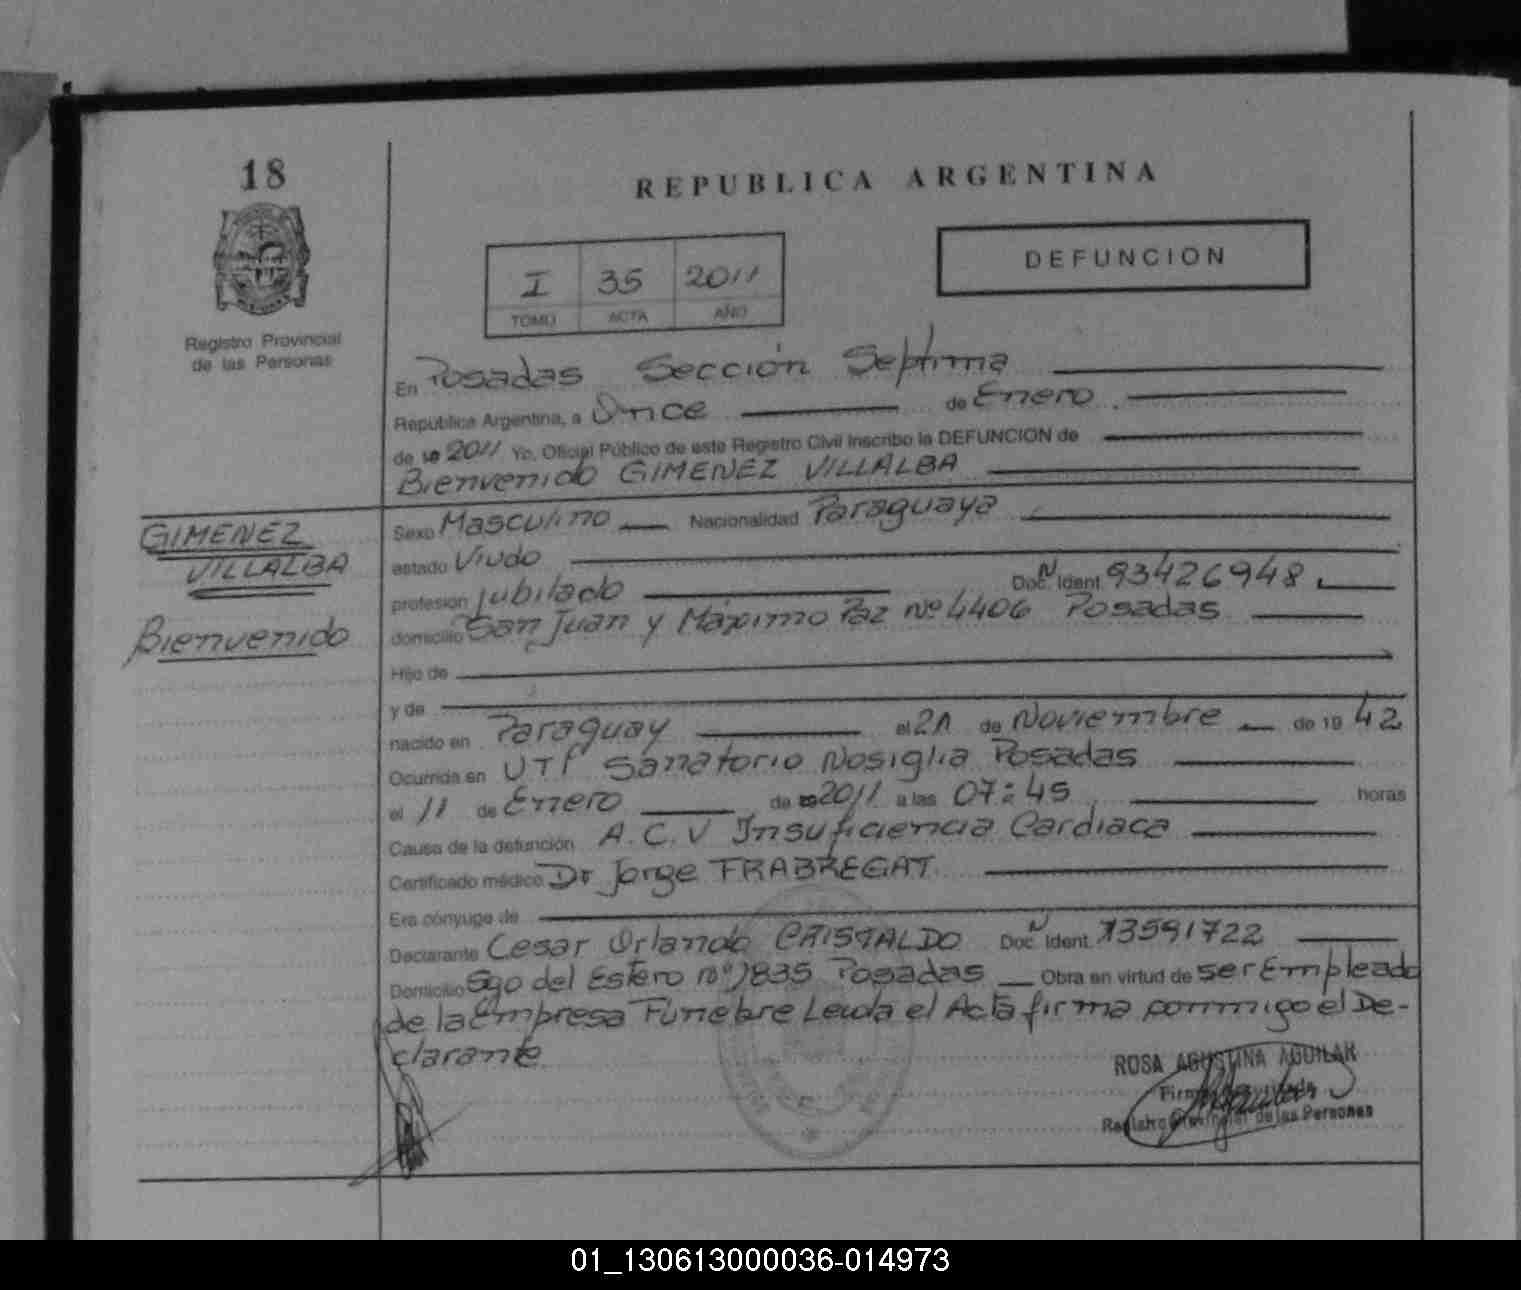 18
Registro Provincial
de las Personas
REPUBLICA ARGENTINA
I 35 2011
TOMO ACTA AÑO
DEFUNCION
En Posadas Sección Septima
República Argentina, a Once de Enero
de 19 2011 Yo, Oficial Público de este Registro Civil inscribo la DEFUNCION de
Bienvenido GIMENEZ VILLALBA
GIMENEZ
VILLALBA
Bienvenido
Sexo Masculino Nacionalidad Paraguaya
estado Viudo
profesión jubilado Doc. N Ident. 93426948
domicilio San Juan y Máximo Paz nº 4406 Posadas
Hijo de
y de
nacido en Paraguay el 21 de Noviembre de 19 42
Ocurrida en UTI Sanatorio Nosiglia Posadas
el 11 de Enero de 2011 a las 07:45 horas
Causa de la defunción A.C.V Insuficiencia Cardiaca
Certificado médico Dr Jorge FRABREGAT
Era cónyuge de
Declarante Cesar Orlando CRISTALDO Doc. N Ident. 13591722
Domicilio Sgo del Estero nº 1835 Posadas Obra en virtud de ser Empleado
de la Empresa Funebre Leida el Acta firma conmigo el De-
clarante
ROSA AGUSTINA AGUILAR
Registro Provincial de las Personas
01_130613000036-014973